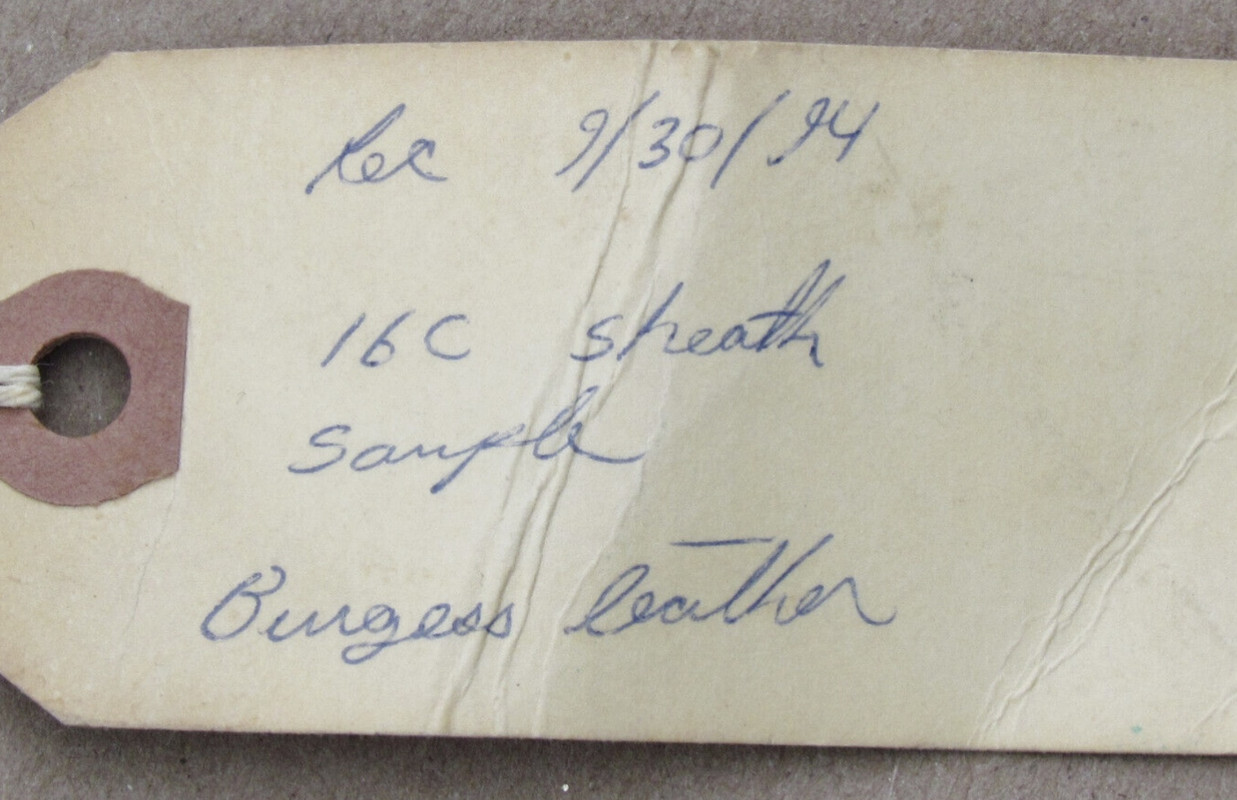 Rec 9/30/94
16C sheath
sample
Burgess leather